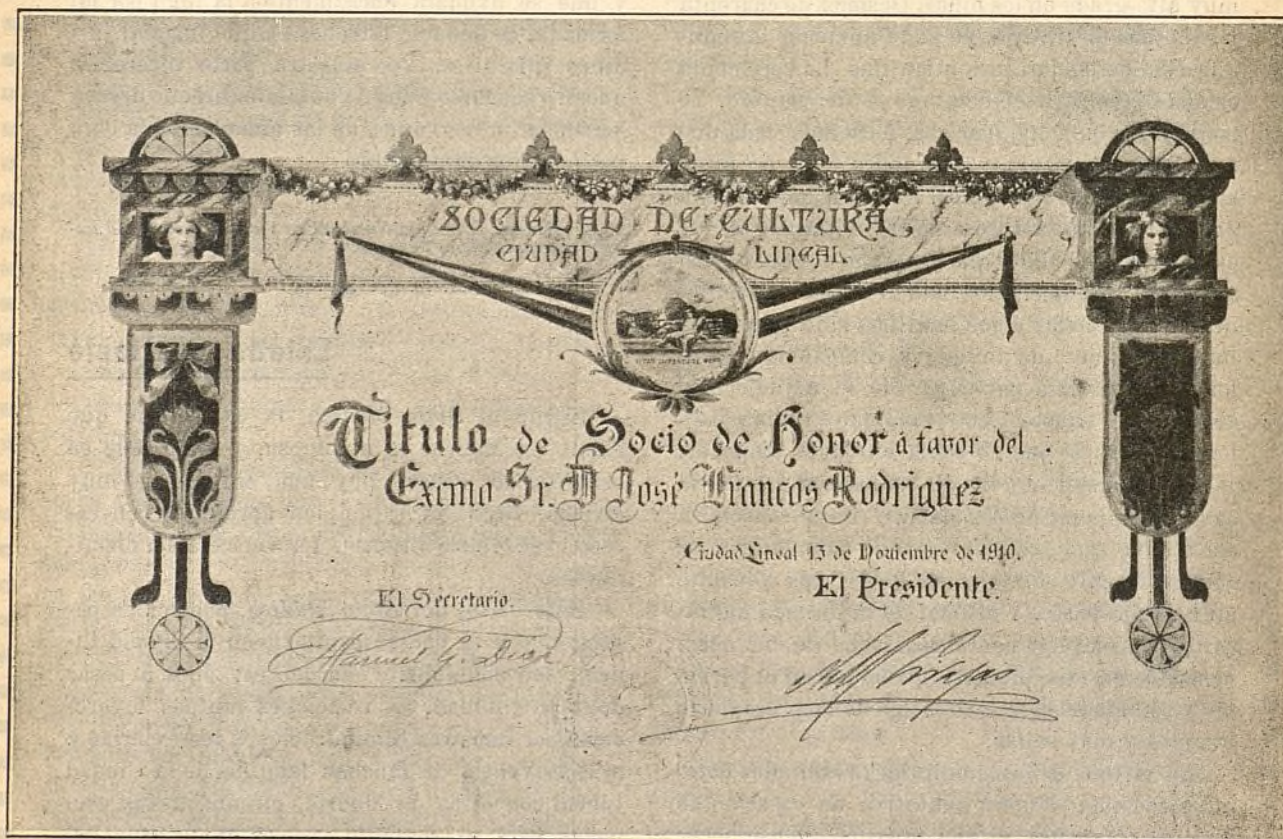 SOCIEDAD DE CULTURA,
CIUDAD LINEAL
Titulo de Socio de Honor á favor del
Excmo Sr. D José Francos Rodriguez
Ciudad Lineal 13 de Noviembre de 1910.
El Secretario.
El Presidente.
Manuel G.